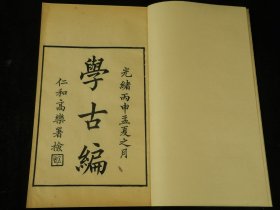 光緒丙申孟夏之月
學古編
仁和高欒署檢